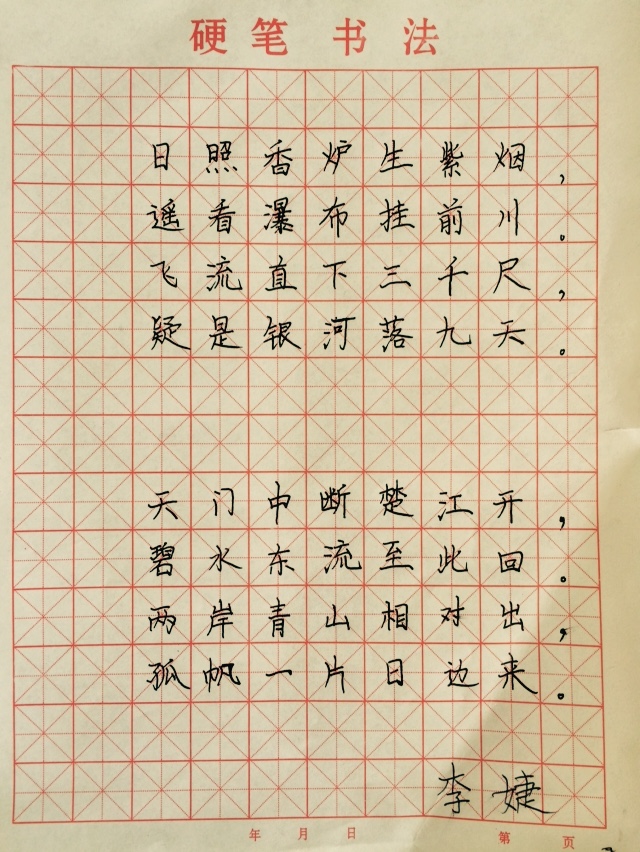 硬笔书法
日照香炉生紫烟，
遥看瀑布挂前川。
飞流直下三千尺，
疑是银河落九天。
天门中断楚江开，
碧水东流至此回。
两岸青山相对出，
孤帆一片日边来。
李婕
年 月 日 第 页